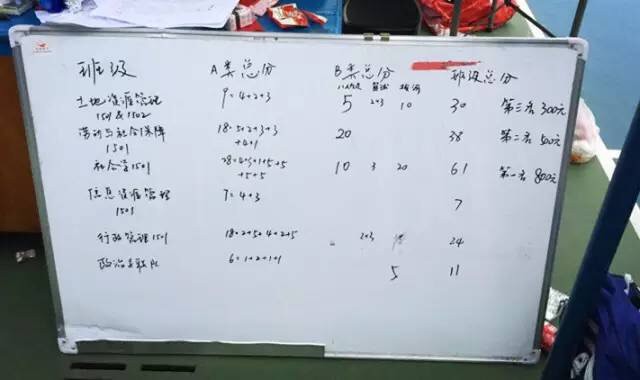 班级 A类总分 B类总分 班级总分
土地资源管理 9=4+2+3 5 2×3 10 30 第三名 300元
1501&1502
劳动与社会保障 18=5+2+3+3 20 38 第二名 500元
1501 +4+1
社会学1501 28=4+3+1+5+5 10 3 20 61 第一名 800元
+5+5
信息资源管理 7=4+3 7
1501
行政管理1501 18=2+5+4+2+5 2×3 24
政治 6=1+2+1+1 5 11